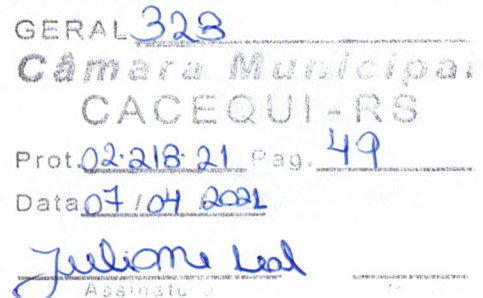 GERAL 328
Câmara Municipal
CACEQUI-RS
Prot. 02.218.21 Pag. 49
Data 07 / 04 2021
Juliome Leal
Assinatura